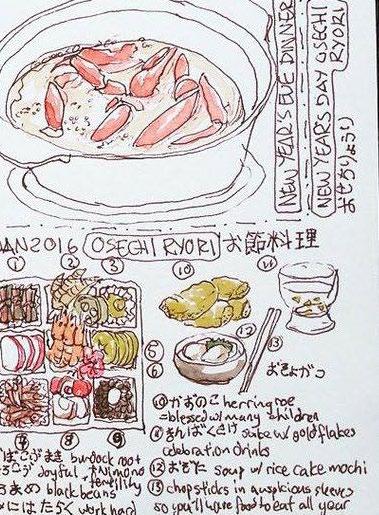 NEW YEAR'S EVE DINNER
NEW YEAR'S DAY OSECHI
RYORI
おせちりょうり
JAN 2016 OSECHI RYORI お節料理
① ② ③ ⑩ ⑪
⑫ ⑬
⑤
⑥
⑦ ⑧ ⑨
⑩ かずのこ herring roe
= blessed w/ many children
⑪ きんぱくさけ sake w/ gold flakes
celebration drinks
⑫ おぞに soup w/ rice cake mochi
⑬ chopsticks in auspicious sleeves
so you'll have food to eat all year
burdock root
joyful
fertility
まめ black beans
にはたらく work hard